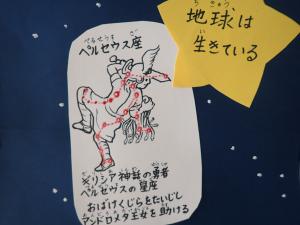 ペルセウス座
ぺるせうす ざ
地球は
ちきゅう
生きている
ギリシア神話の勇者
ペルセウスの星座
おばけくじらをたいじし
アンドロメダ王女を助ける